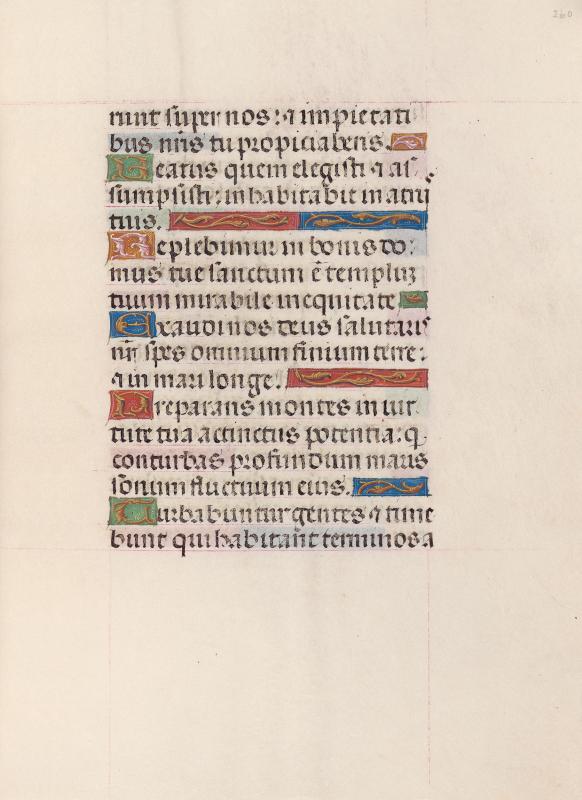 260
runt super nos: ⁊ impietati
bus nr̄is tu propiciaberis.
Beatus quem elegisti ⁊ as
sumpsisti: inhabitabit in atrijs
tuis.
Replebimur in bonis do:
mus tue sanctum ē templuȝ
tuum mirabile in equitate
Exaudi nos deus salutaris
nr̄ spes omnium finium terre:
⁊ in mari longe.
Preparans montes in uir
tute tua accinctus potentia: q
conturbas profundum maris
sonum fluctuum eius.
Turbabuntur gentes ⁊ time
bunt qui habitant terminos a